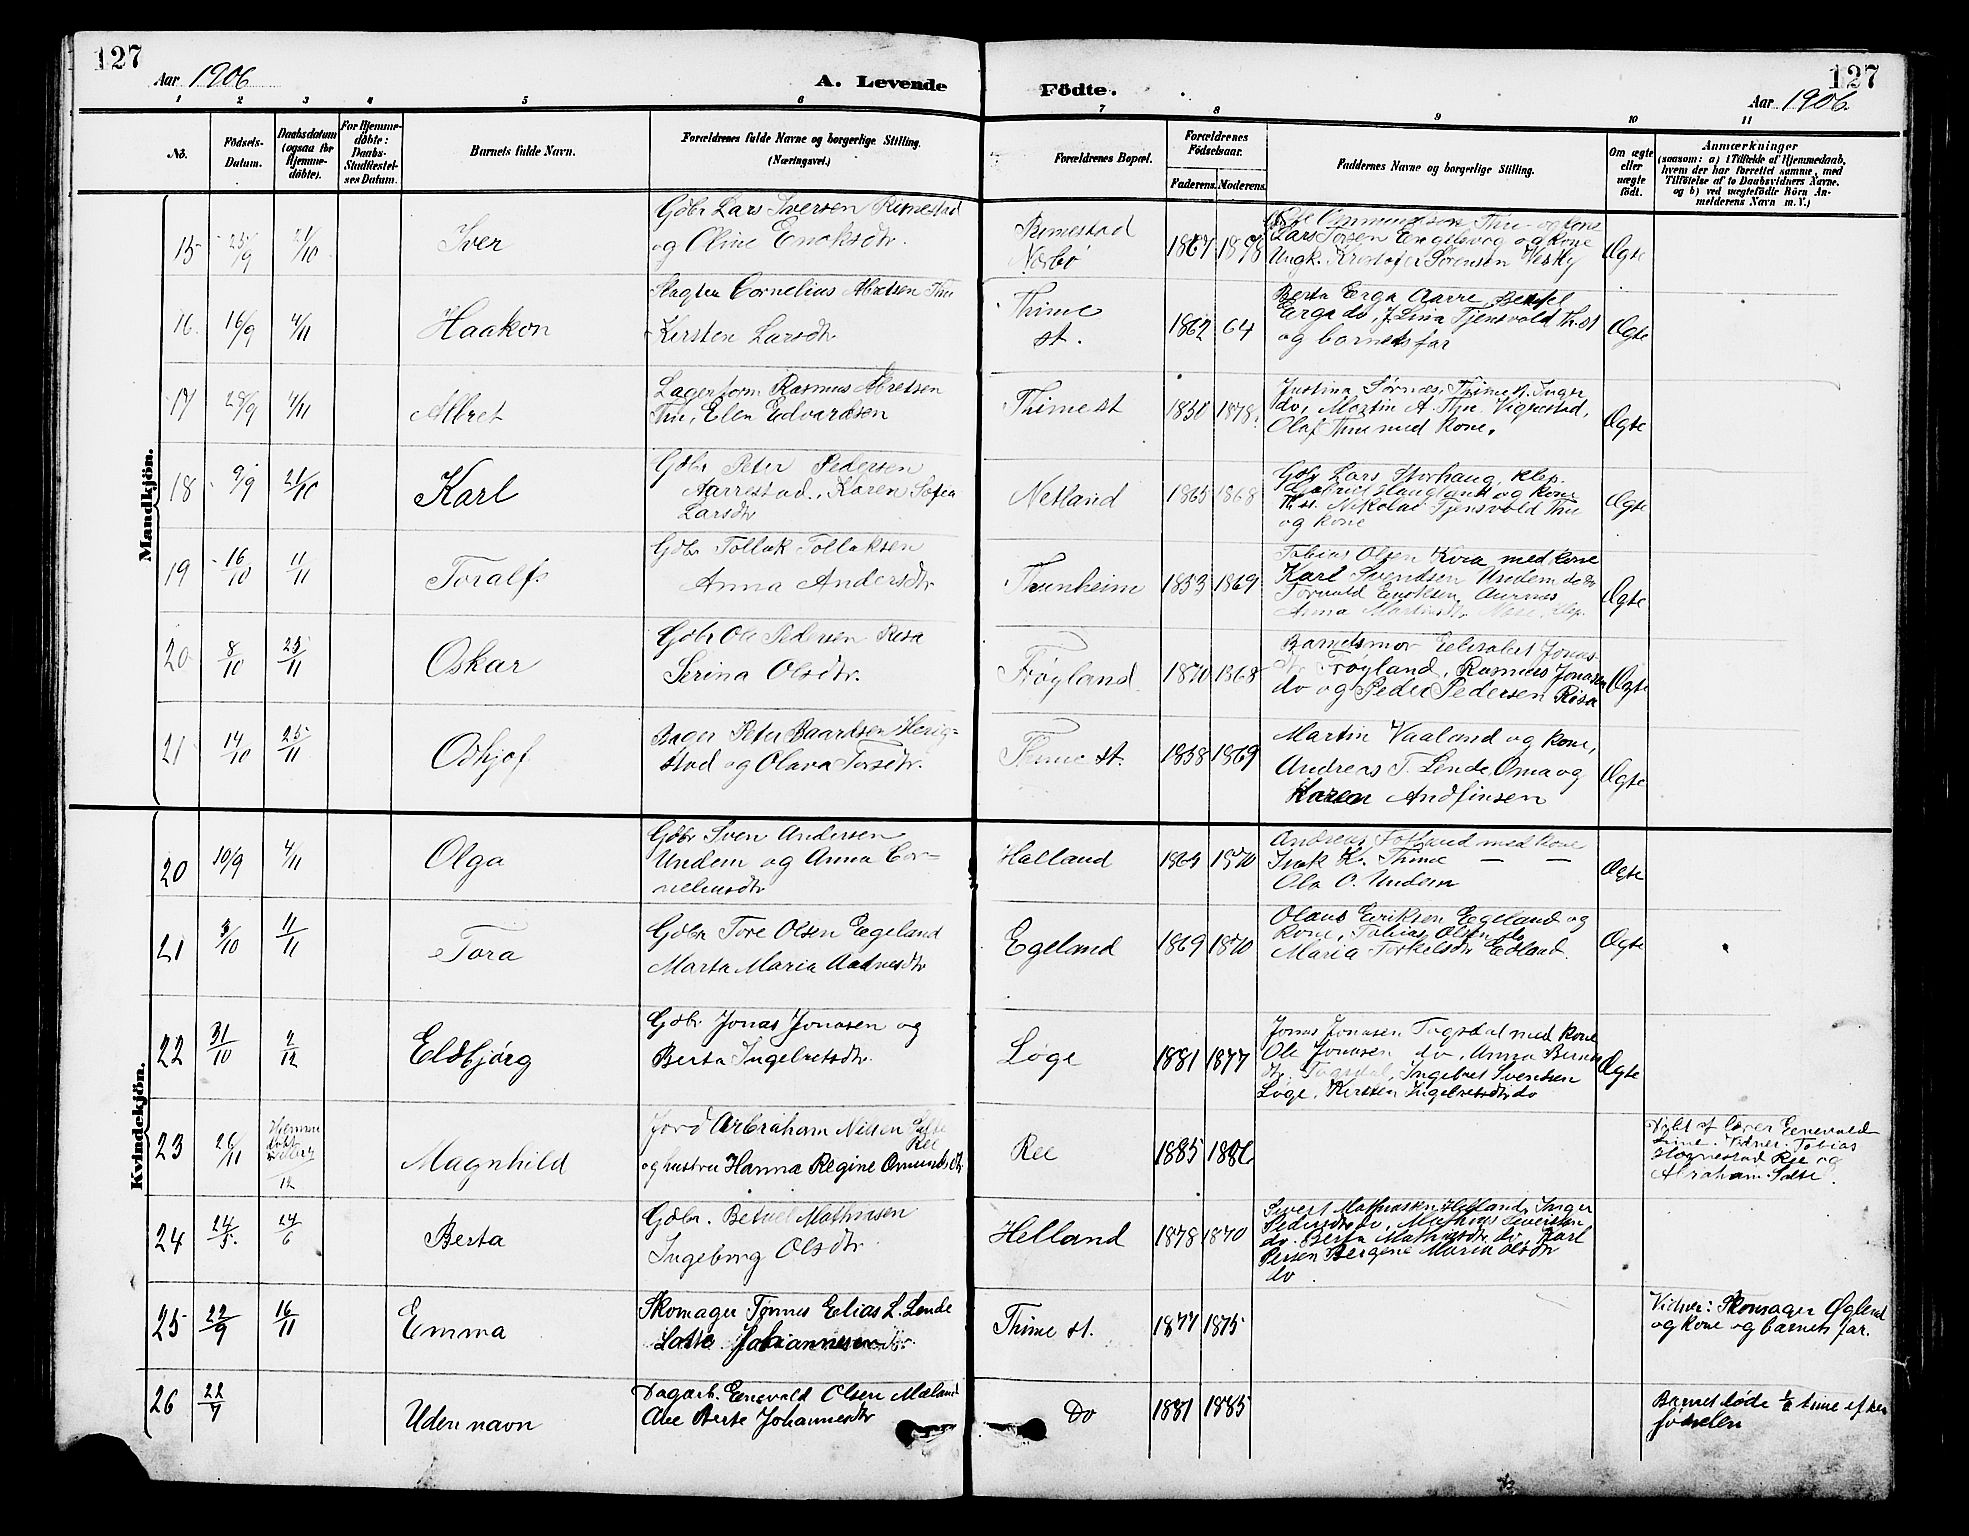 127
Aar 1906
A. Levende
Födte.
127
Aar 1906.
1 2 3 4 5 6 7 8 9 10 11
No.
Födsels-
Datum.
Daabsdatum
(ogsaa for
Hjemme-
döbte).
For Hjemme-
döbte:
Daabs-
Stadfæstel-
ses Datum.
Barnets fulde Navn.
Forældrenes fulde Navne og borgerlige Stilling.
(Næringsvei.)
Forældrenes Bopæl.
Forældrenes
Födselsaar.
Faderens. Moderens.
Faddernes Navne og borgerlige Stilling.
Om ægte
eller
uægte
födt.
Anmærkninger
(saasom: a) i Tilfælde af Hjemmedaab,
hvem der har forrettet samme, med
Tilföielse af to Daabsvidners Navne.
og b) ved uægtefödte Börn An-
melderens Navn m. V.)
Mandkjön.
15 25/9 21/10 Iver
Gdbr Lars Iversen Rimestad
og Oline Enoksdtr.
Rimestad
Nærbø
1867 1878
Lars Torsen Engelsvog og kone
Ungk. Kristofer Sørensen
Ægte
16. 16/9 4/11 Haakon
Slagter Cornelius Albretsen Thu
Kirsten Larsdtr
Thime
st.
1862 64
Berta Erga Aarre,
Erga do, J. Lina Tjensvold Th. st
og barnets far
Ægte
17 29/9 4/11 Albret
Lagerform Rasmus Albretsen
Thu, Elen Edvardsen
Thime st
1851 1878.
Justina Sørnæs, Thime st. Inger
do, Martin A. Thu Vigrestad,
Olaf Thu med kone.
Ægte
18 9/9 21/10 Karl
Gdbr Peter Pedersen
Aarrestad, Karen Sofia
Larsdtr
Netland
1865 1868
Gdbr Lars Storhaug, Klep.
Gabriel Haugland og kone
Th. st. Nikolai Tjensvold Thu
og kone
Ægte
19 16/10 11/11 Toralfs
Gdbr Tollak Tollaksen
Anna Andersdtr
Thunheim
1853 1869
Tobias Olsen Kvia med kone
Karl Svendsen Undem do
Torvald Enoksen,
Anna Martinsdtr
Ægte
20 8/10 25/11 Oskar
Gdbr Ole Pedersen Risa
Serina Olsdtr.
Frøyland
1870 1868
Barnetsmor Elisabet Jonas-
dtr Frøyland, Rasmus Jonasen
do og Peder Pedersen Risa
Ægte
21 14/10 25/11 Oskjof
Bager Peter Baardsen Herig-
stad og Olava Torsdtr.
Thime st.
1858 1869
Martin Vaaland og kone,
Andreas T. Lende, Oma og
Karen Andfinsen
Ægte
Kvindekjön.
20 10/9 4/11 Olga
Gdbr Sven Andersen
Undem og Anna Cor-
neliusdtr
Halland
1864 1870
Andreas Fotland med kone
Isak K. Thime — —
Ola O. Undem
Ægte
21 3/10 11/11 Tora
Gdbr Tore Olsen Egeland
Marta Maria Aadnesdtr
Egeland
1869 1870
Olaus Eriksen Egeland og
kone, Tobias Olsen do
Maria Torkelsdtr Edland.
Ægte
22 31/10 2/12 Eldbjørg
Gdbr Jonas Jonasen og
Berta Ingebretsdtr.
Løge
1881 1877
Jonas Jonasen Tugsdal med kone
Ole Jonasen do, Anna
dtr. Tugsdal, Ingebret Svendsen
Løge, Kirsten Ingebretsdtr do
Ægte
23 26/11 Hjemme
døbt
12 Magnhild
Jord Arbraham Nilsen Salte
Ree
og hustru Hanna Regine Omundsdtr
Ree
1885 1886
Døbt af lærer Enevald
Lime. Vidner: Tobias
Hognestad Ree og
Abraham Salte.
24 24/5 24/6 Berta
Gdbr. Betuel Mathiasen
Ingeborg Olsdtr.
Helland
1878 1870
Sivert Mathiasen Helland, Inger
Pedersdtr do, Mathias Sivertsen
do, Berta Mathiasdtr do, Karl
Persen Bergene Maria Olsdtr
do.
25 22/9 16/11 Emma
Skomager Tønnes Elias L. Lende
Johannesdtr
Thime st.
1877 1875
Vidner: Skomager Øglend
og kone og barnets far.
26 22/7 Uden navn
Dagarb. Enevald Olsen Mæland
Ane Berte Johannesdtr
Do
1881 1885
Barnet døde ½ time efter
fødselen